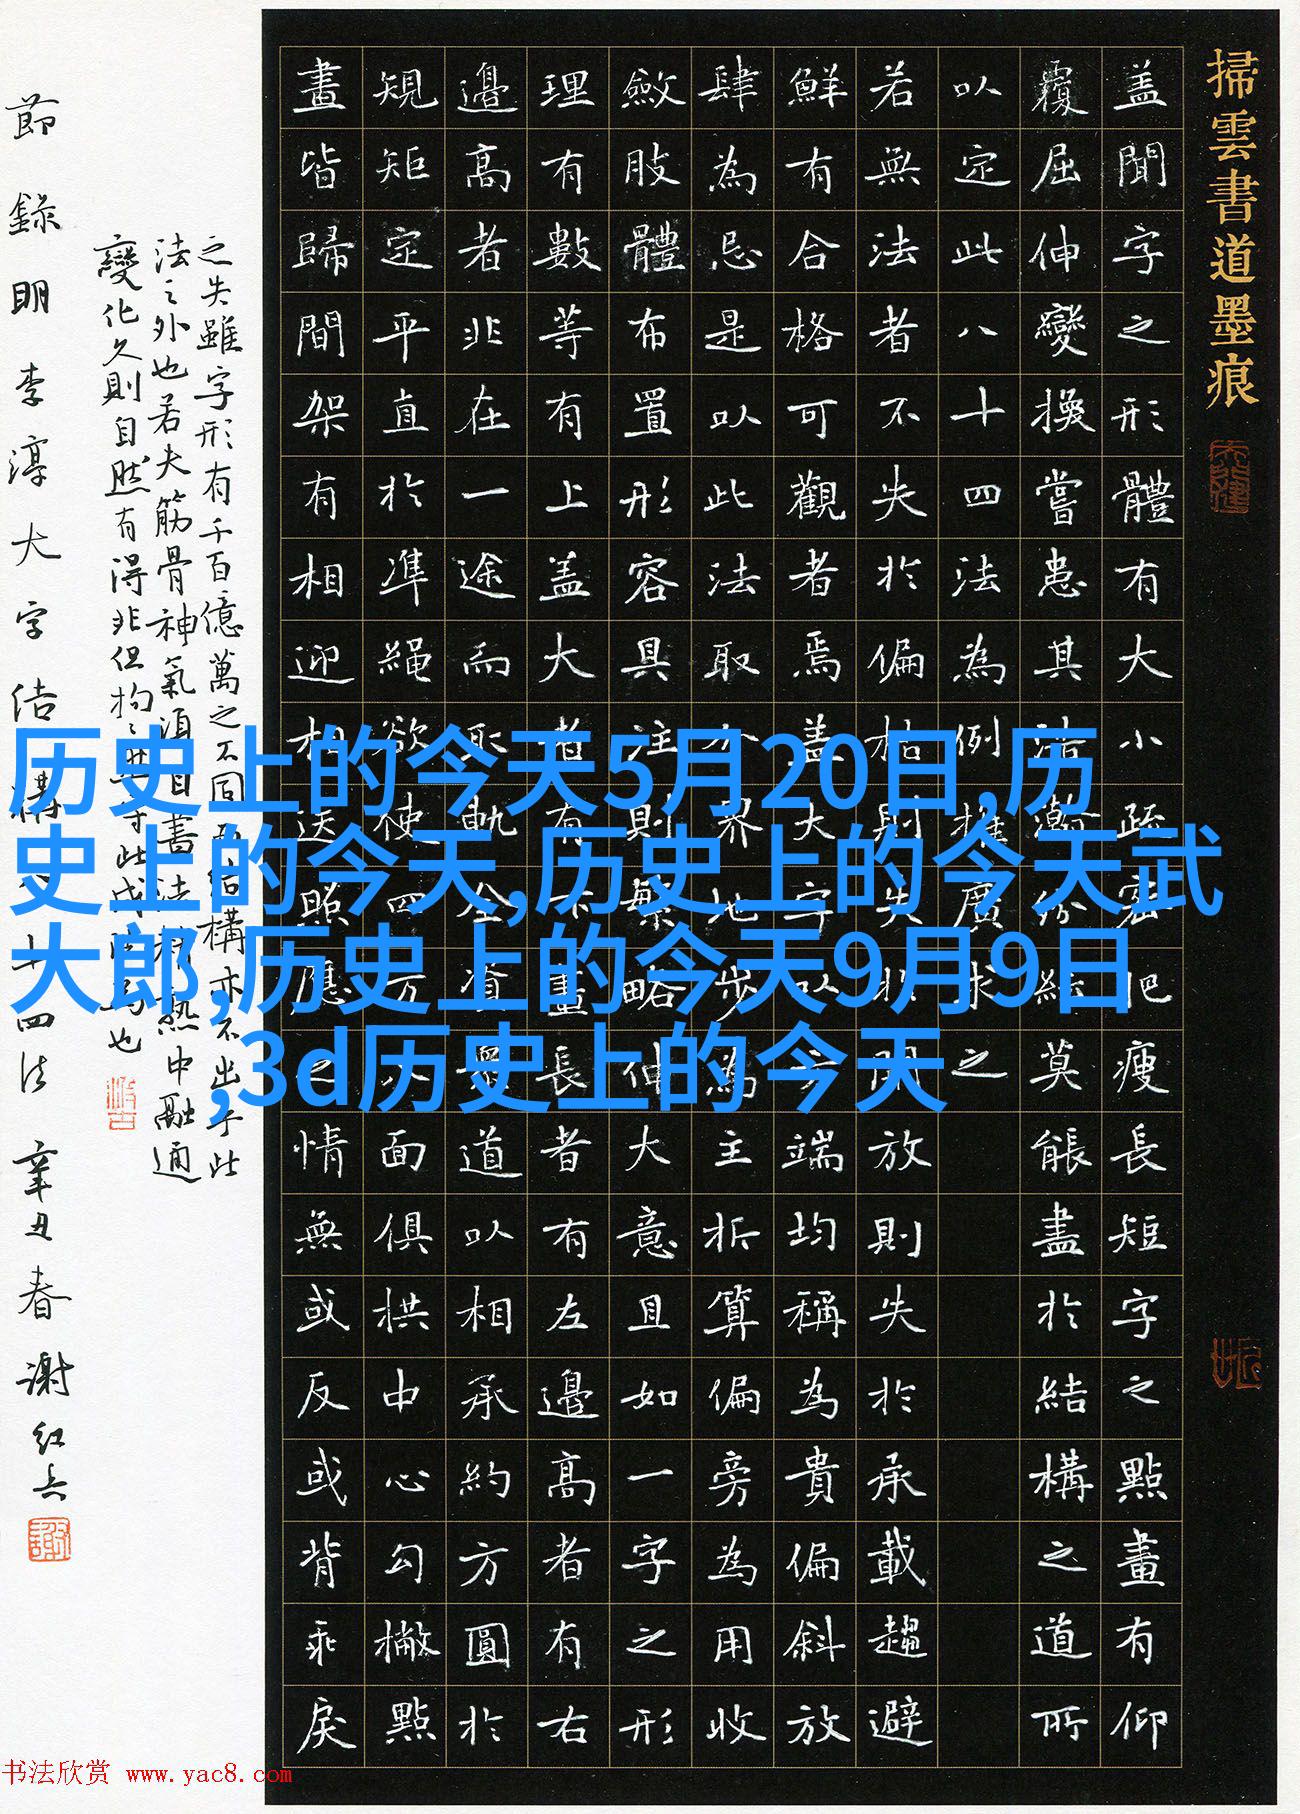 掃雲書道墨痕
盖聞字之形體有大小疏密肥瘦長短字之點畫有仰
覆屈伸變換嘗患其浩瀚紛紜莫能盡於結構之道所
以定此八十四法為例推廣求之
若無法者不失於偏枯則失於開放則失於承載趨避
鮮有合格可觀者焉盖大字以方端均稱為貴偏斜放
肆為忌是以此法取分界地步為主折算偏旁為用收
斂肢體布置形容具注則繁略伸大意且如一字之形
理有數等有上盖大者有下畫長者有左邊高者有右
邊高者非在一途而取軌全資眾道以相承約方圓於
規矩定平直於準繩欲使四方八面俱拱中心勾撇點
畫皆歸間架有相迎相送照應之情無或反或背乖戾
之失雖字形有千百億萬之不同而結構亦不出乎此
法之外也若夫筋骨神氣須自書法精熟中融通
變化久則自然有得非但拘守此成也
節錄明李淳大字結構八十四法 辛丑春 謝紅兵
历史上的今天5月20日,历
史上的今天,历史上的今天武
大郎,历史上的今天9月9日
,3d历史上的今天
书法欣赏 www.yac8.com